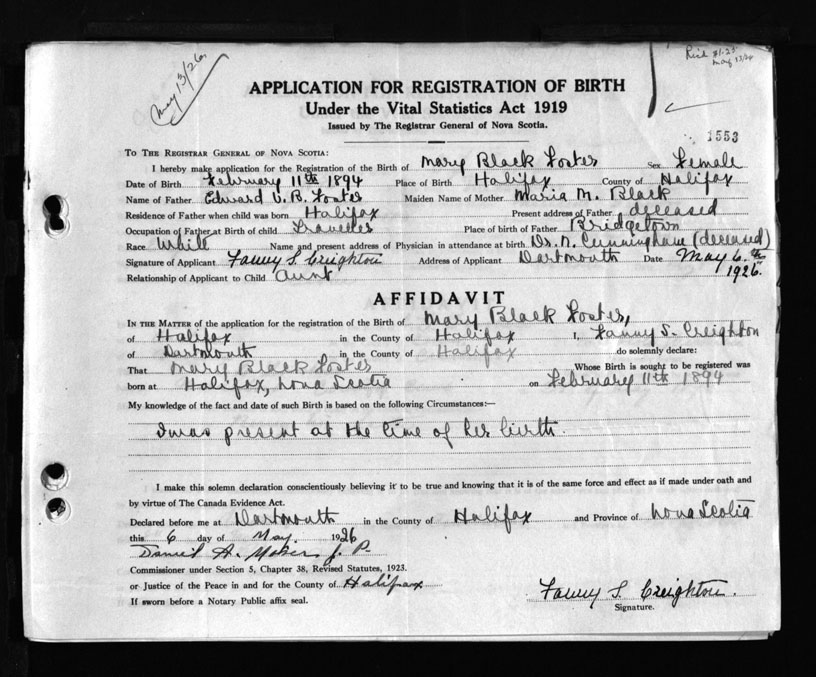 May 13/26.
APPLICATION FOR REGISTRATION OF BIRTH
Under the Vital Statistics Act 1919
Issued by The Registrar General of Nova Scotia.
1553
TO THE REGISTRAR GENERAL OF NOVA SCOTIA:
I hereby make application for the Registration of the Birth of Mary Black Foster Sex Female
Date of Birth February 11th 1894 Place of Birth Halifax County of Halifax
Name of Father Edward V. B. Foster Maiden Name of Mother Maria M. Black
Residence of Father when child was born Halifax Present address of Father deceased
Occupation of Father at Birth of child Traveller Place of birth of Father Bridgetown
Race White Name and present address of Physician in attendance at birth Dr. N. Cunningham (deceased)
Signature of Applicant Fanny S. Creighton Address of Applicant Dartmouth Date May 6th
1926.
Relationship of Applicant to Child Aunt
AFFIDAVIT
IN THE MATTER of the application for the registration of the Birth of Mary Black Foster,
of Halifax in the County of Halifax I, Fanny S. Creighton
of Dartmouth in the County of Halifax do solemnly declare:
That Mary Black Foster Whose Birth is sought to be registered was
born at Halifax, Nova Scotia on February 11th 1894
My knowledge of the fact and date of such Birth is based on the following Circumstances:—
I was present at the time of her birth.
I make this solemn declaration conscientiously believing it to be true and knowing that it is of the same force and effect as if made under oath and
by virtue of The Canada Evidence Act.
Declared before me at Dartmouth in the County of Halifax and Province of Nova Scotia
this 6 day of May. 1926
Daniel A. J. P.
Commissioner under Section 5, Chapter 38, Revised Statutes, 1923.
or Justice of the Peace in and for the County of Halifax
If sworn before a Notary Public affix seal.
Fanny S. Creighton.
Signature.